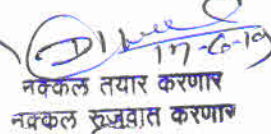 17-6-19
नक्कल तयार करणार
नक्कल रूजवात करणार